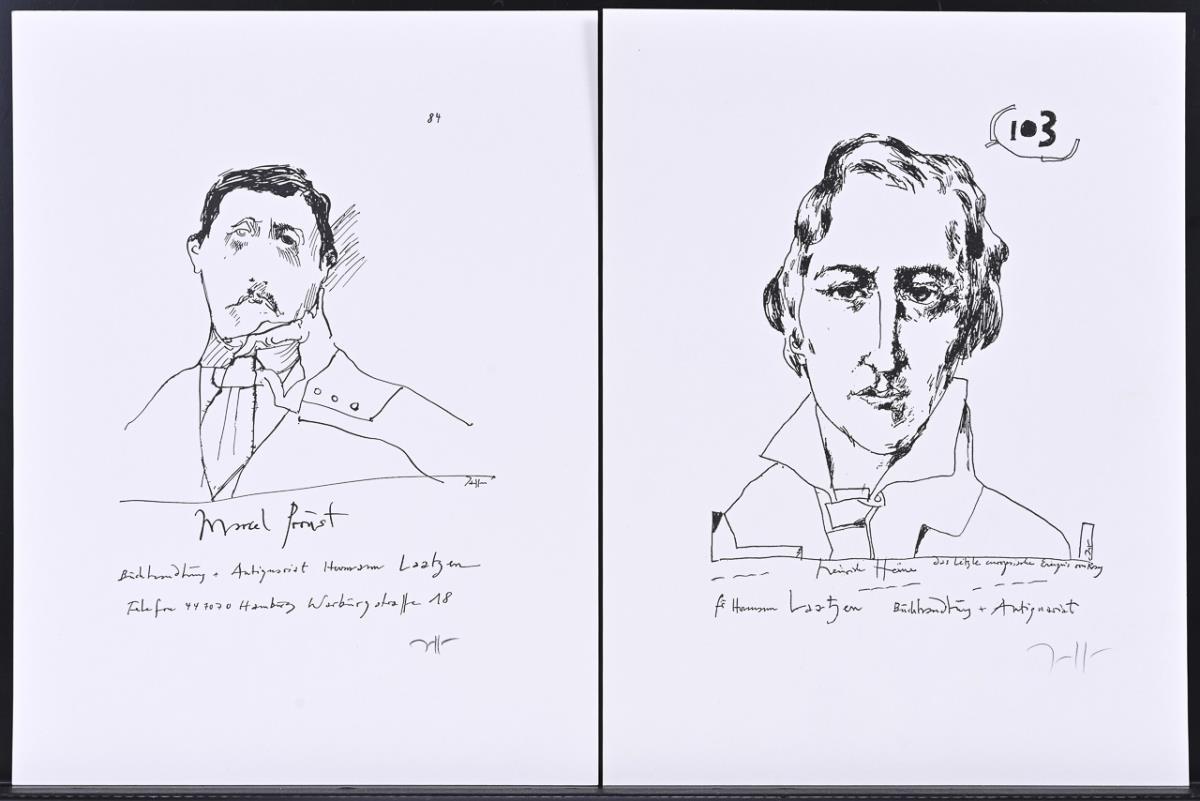 84
Marcel Proust
Büchhandlüng + Antiquariat Hermann Laatzen
Telefon 447020 Hamburg Warbürgstraße 18
103
Heinrich Heine das letzte europäische Ereignis
für Hermann Laatzen Büchhandlüng + Antiquariat